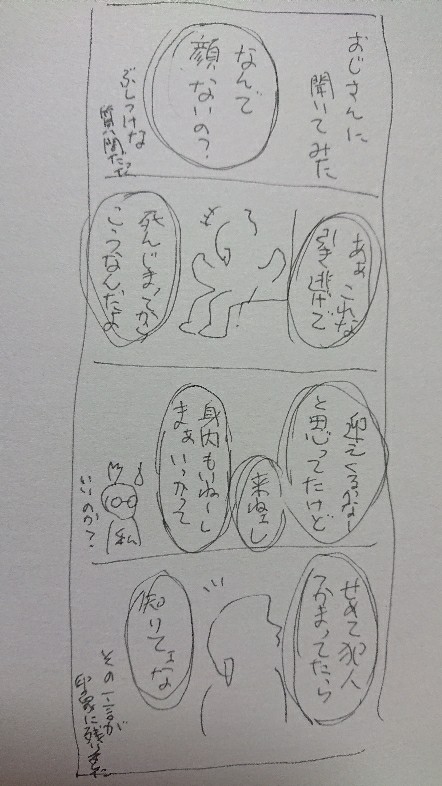 おじさんに
聞いてみた
なんで
顔ないの?
ぶしつけな
質問だった
あぁ これな
引き逃げで
死んじまってから
こうなんだよ
迎えくるかなー
と思ってたけど
来ねェし
身内もいねーし
まぁいっかって
私
いいのか?
せめて犯人
つかまってたら
知りてェな
その一言が
印象に残りました